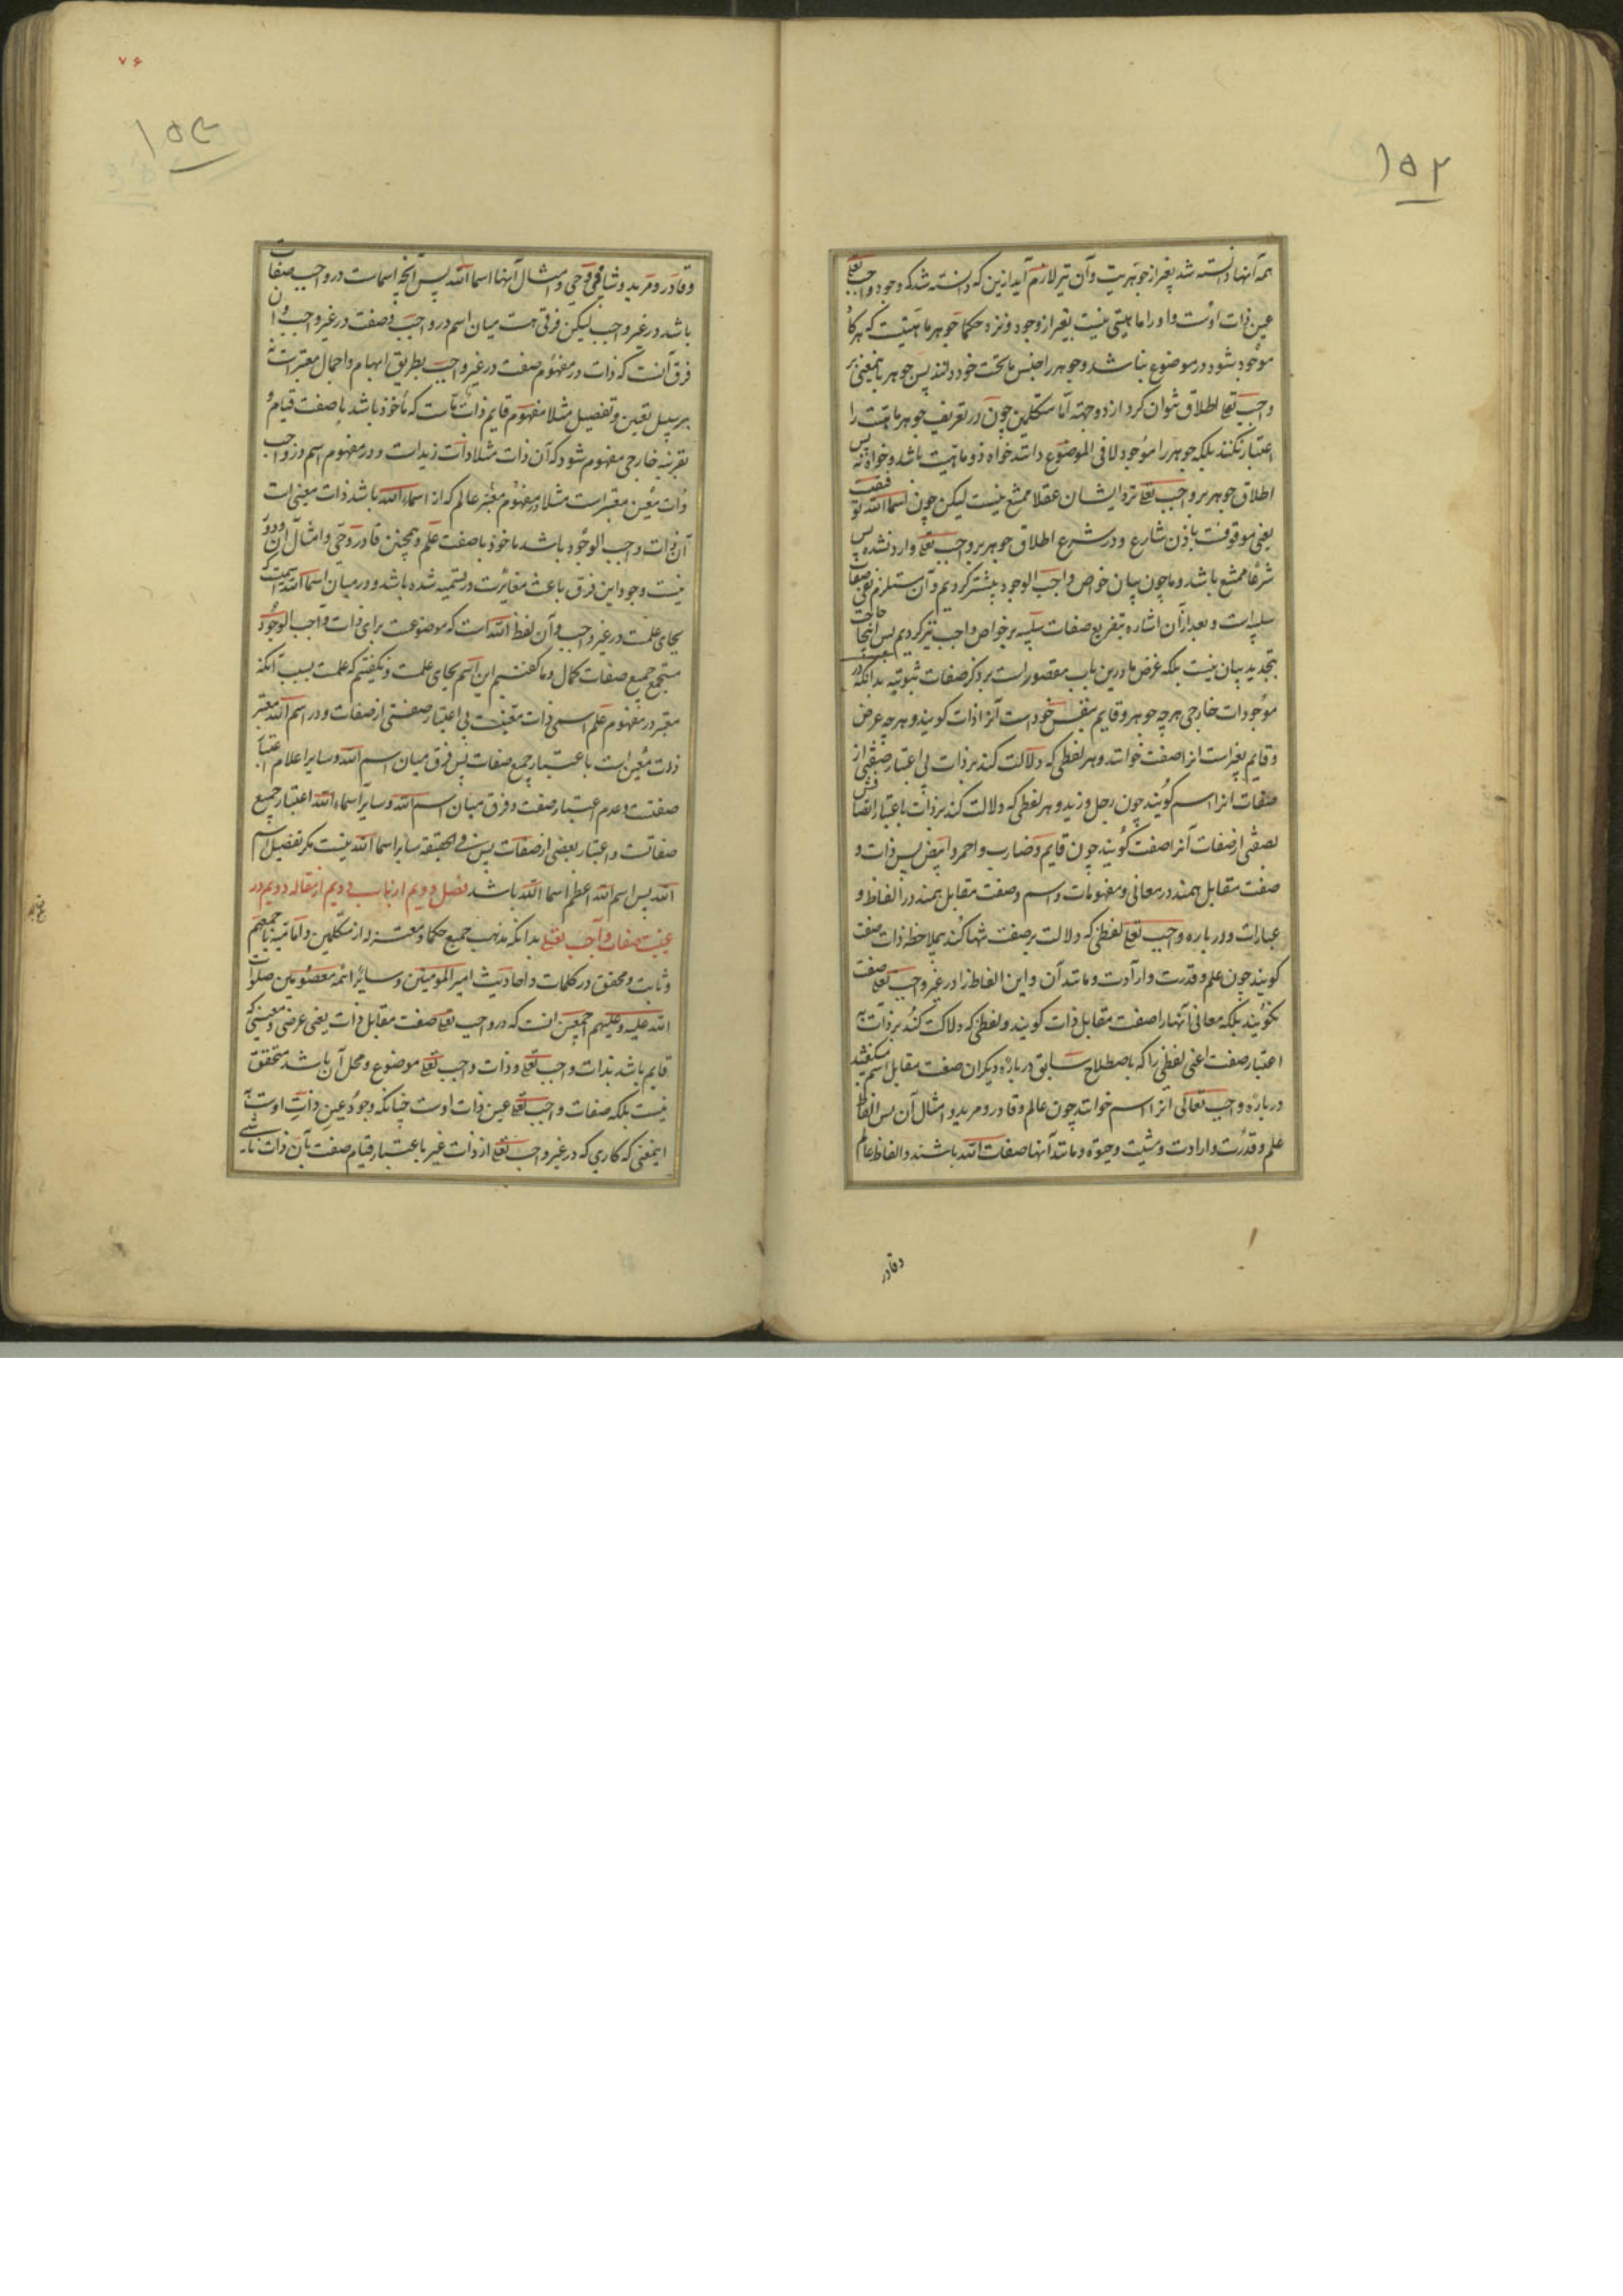 ۱۵۲
همه آنها دانسته شد بغیر از جوهریت و آن نیز لازم آید ازین که دانسته شد که وجود واجب تعالی
عین ذات اوست و او را ماهیتی نیست بغیر از وجود و نزد حکما جوهر ماهیتیست که هرگاه
موجود شود در موضوع نباشد و جوهر را جنس ماتحت خود دانند پس جوهر باینمعنی بر
واجب تعالی اطلاق نتوان کرد از دو جهة اما متکلمین چون در تعریف جوهر ماهیت را
اعتبار نکنند بلکه جوهر را موجود لا فی الموضوع دانند خواه ذو ماهیت باشد و خواه نه پس
اطلاق جوهر بر واجب تعالی نزد ایشان عقلا ممتنع نیست لیکن چون اسماء الله توقیفیست
یعنی موقوفست باذن شارع و در شرع اطلاق جوهر بر واجب تعالی وارد نشده پس
شرعا ممتنع باشد و ما چون بیان خواص واجب الوجود پیشتر کردیم و آن مستلزم نفی صفات
سلبیه است و بعد از آن اشاره بتفریع صفات سلبیه بر خواص واجب نیز کردیم پس اینجا حاجت
بتجدید بیان نیست بلکه غرض ما درین باب مقصور است بر ذکر صفات ثبوتیه بدانکه در
موجودات خارجی هر چه جوهر و قایم بنفس خود است آنرا ذات گویند و هر چه عرض
و قایم بغیر است انرا صفت خوانند و هر لفظی که دلالت کند بر ذات بی اعتبار صفتی از
صفات انرا اسم گویند چون رجل و زید و هر لفظی که دلالت کند بر ذات باعتبار اتصافش
بصفتی از صفات آنرا صفت گویند چون قایم و ضارب و احمر و ابیض پس ذات و
صفت مقابل همند در معانی و مفهومات و اسم و صفت مقابل همند در الفاظ و
عبارات و در باره واجب تعالی لفظی که دلالت بر صفت تنها کند بملاحظه ذات صفت
گویند چون علم و قدرت و ارادت و مانند آن و این الفاظ را در غیر واجب تعالی صفت
نگویند بلکه معانی آنها را صفت مقابل ذات گویند و لفظی که دلالت کند بر ذات به
اعتبار صفت اعنی لفظی را که باصطلاح سابق در باره دیگران صفت مقابل اسم میگفتند
در باره واجب تعالی انرا اسم خوانند چون عالم و قادر و مرید و امثال آن پس الفاظ
علم و قدرت و ارادت و مشیت و حیوة و مانند آنها صفات الله باشند و الفاظ عالم
وقادر
۷۶
۱۵۳
و قادر و مرید و شافی و حی و امثال آنها اسماء الله پس آنچه اسمات در واجب صفات
باشد در غیر واجب لیکن فرقی هست میان اسم در واجب و صفت در غیر واجب و آن
فرق آنست که ذات در مفهوم صفت در غیر واجب بطریق ابهام و اجمال معتبر است نه
بر سبیل تعین و تفصیل مثلا مفهوم قایم ذاتیست که مأخوذ باشد با صفت قیام و
بقرینه خارجی مفهوم شود که آن ذات مثلا ذات زید است و در مفهوم اسم در واجب
ذات معین معتبر است مثلا در مفهوم معتبر عالم که از اسماء الله باشد ذات معینی است
آن ذات واجب الوجود باشد ماخوذ با صفت علم و همچنین قادر و حی و امثال آن و دور
نیست وجود این فرق باعث مغایرت در تسمیه شده باشد و در میان اسماء الله اسمیست که
بجای علمست در غیر واجب و آن لفظ الله است که موضوعست برای ذات واجب الوجود
مستجمع جمیع صفات کمال و ما گفتیم این اسم بجای علمست و نگفتیم که علمست بسبب آنکه
معتبر در مفهوم علم اسمی ذات معینست بی اعتبار صفتی از صفات و در اسم الله معتبر
ذات معین است باعتبار جمیع صفات پس فرق میان اسم الله و سایر اعلام اعتبار
صفتست و عدم اعتبار صفت و فرق میان اسم الله و سایر اسماء الله اعتبار جمیع
صفاتست و اعتبار بعضی از صفات پس فی الحقیقه سایر اسماء الله نیست مگر تفصیل اسم
الله پس اسم الله اعظم اسماء الله باشد فصل دویم از باب دویم از مقاله دویم در
عینیت صفات واجب تعالی بدانکه مذهب جمیع حکما و معتزله از متکلمین و امامیه باجمعهم
و ثابت و محقق در کلمات و احادیث امیر المومنین و سایر ائمه معصومین صلوات
الله علیه و علیهم اجمعین انست که در واجب تعالی صفت مقابل ذات یعنی عرضی و معنیی که
قایم باشد بذات واجب تعالی و ذات واجب تعالی موضوع و محل آن باشد متحقق
نیست بلکه صفات واجب تعالی عین ذات اوست چنانکه وجود عین ذات اوست به
اینمعنی که کاری که در غیر واجب تعالی از ذات غیر باعتبار قیام صفت بآن ذات ناشی